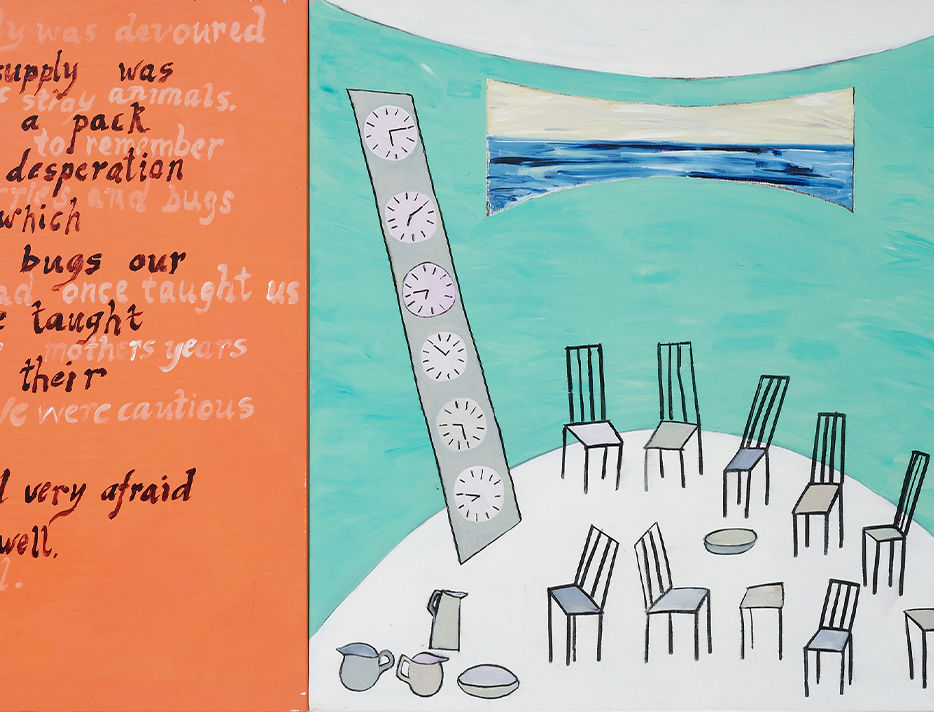 was devoured
supply was
stray animals.
a pack
to remember
desperation
and bugs
which
bugs our
once taught us
taught
mothers years
their
were cautious
very afraid
well.